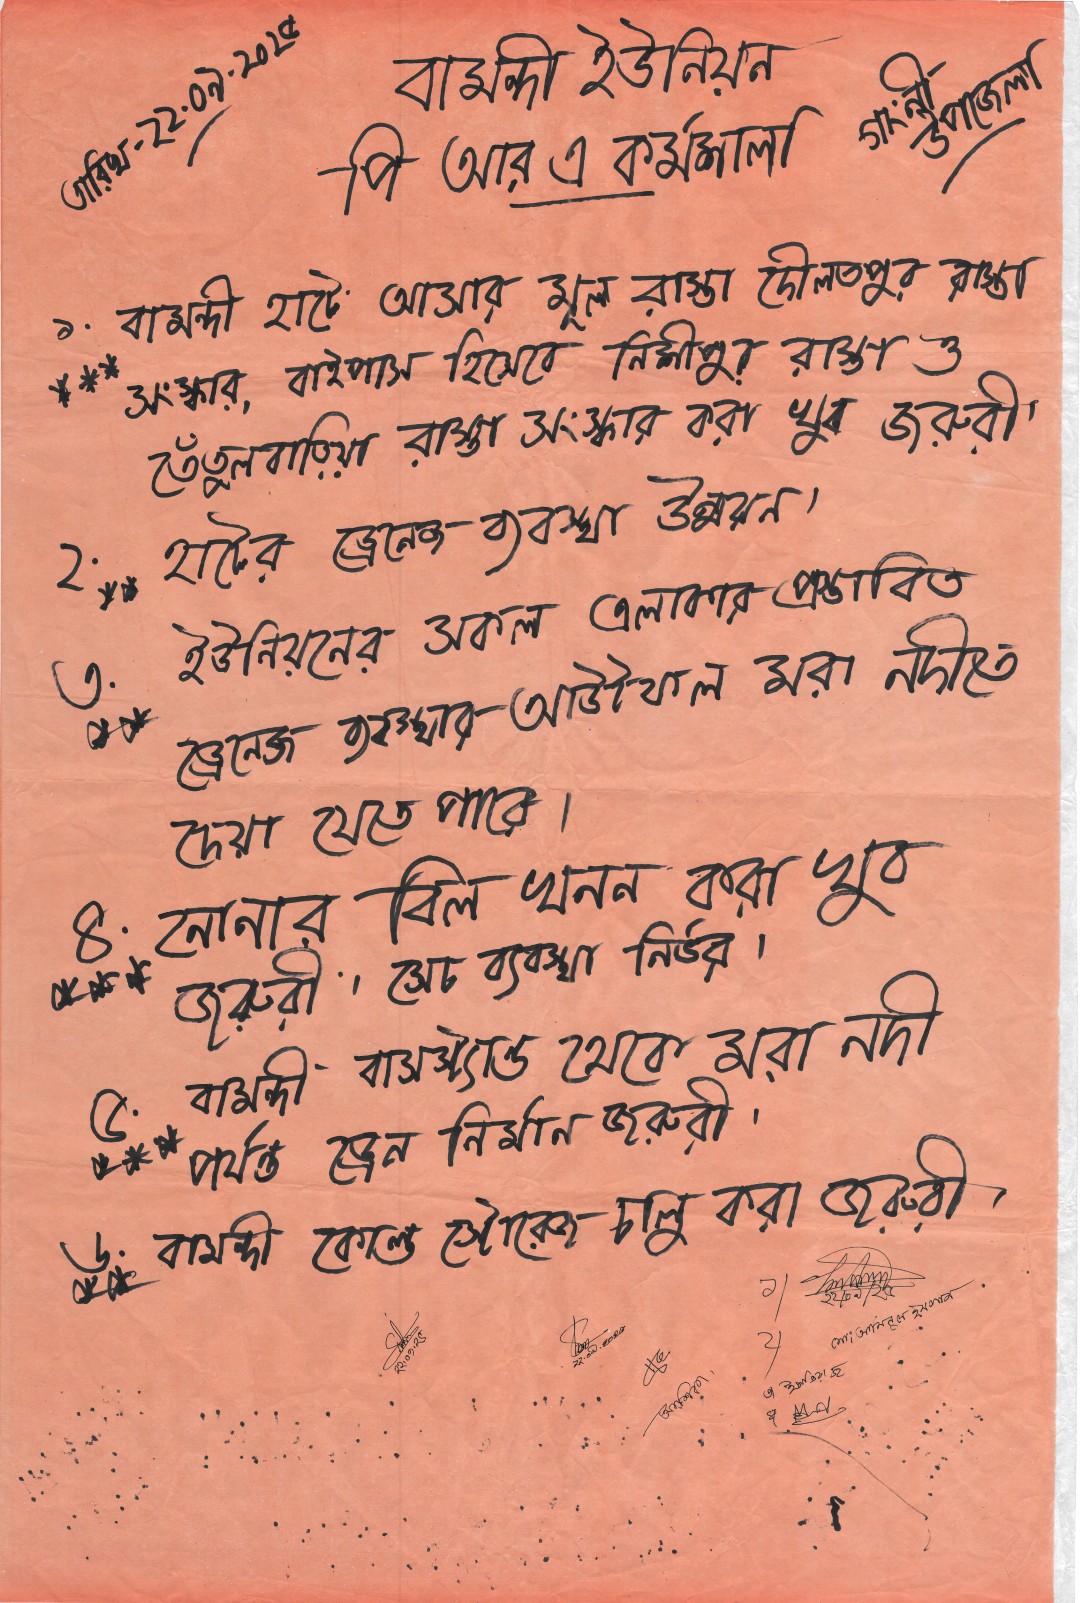 তারিখ-২২.০৭.২০২৫
বামন্দী ইউনিয়ন
গাংনী উপজেলা
পি আর এ কর্মশালা
১. বামন্দী হাটে আসার মূল রাস্তা দৌলতপুর রাস্তা
*** সংস্কার, বাইপাস হিসেবে নিশীপুর রাস্তা ও
তেঁতুলবাড়িয়া রাস্তা সংস্কার করা খুব জরুরী।
২. ** হাটের ড্রেনেজ ব্যবস্থা উন্নয়ন।
৩. ইউনিয়নের সকল এলাকার প্রস্তাবিত
** ড্রেনেজ ব্যবস্থার আউটখাল মরা নদীতে
দেয়া যেতে পারে।
৪. নোনার বিল খনন করা খুব
*** জরুরী। সেচ ব্যবস্থা নির্ভর।
৫. বামন্দী বাসস্ট্যান্ড থেকে মরা নদী
*** পর্যন্ত ড্রেন নির্মান জরুরী।
৬. ** বামন্দী কোল্ড স্টোরেজ চালু করা জরুরী।
১)
২২/০৭/২৫
২২.০৭.২৫
২)